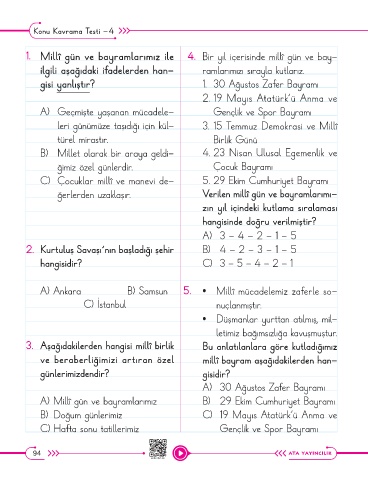 Konu Kavrama Testi - 4
1. Millî gün ve bayramlarımız ile
ilgili aşağıdaki ifadelerden han-
gisi yanlıştır?
A) Geçmişte yaşanan mücadele-
leri günümüze taşıdığı için kül-
türel mirastır.
B) Millet olarak bir araya geldi-
ğimiz özel günlerdir.
C) Çocuklar millî ve manevi de-
ğerlerden uzaklaşır.
2. Kurtuluş Savaşı'nın başladığı şehir
hangisidir?
A) Ankara B) Samsun
C) İstanbul
3. Aşağıdakilerden hangisi millî birlik
ve beraberliğimizi artıran özel
günlerimizdendir?
A) Millî gün ve bayramlarımız
B) Doğum günlerimiz
C) Hafta sonu tatillerimiz
4. Bir yıl içerisinde millî gün ve bay-
ramlarımızı sırayla kutlarız.
1. 30 Ağustos Zafer Bayramı
2. 19 Mayıs Atatürk'ü Anma ve
Gençlik ve Spor Bayramı
3. 15 Temmuz Demokrasi ve Millî
Birlik Günü
4. 23 Nisan Ulusal Egemenlik ve
Çocuk Bayramı
5. 29 Ekim Cumhuriyet Bayramı
Verilen millî gün ve bayramlarımı-
zın yıl içindeki kutlama sıralaması
hangisinde doğru verilmiştir?
A) 3 - 4 - 2 - 1 - 5
B) 4 - 2 - 3 - 1 - 5
C) 3 - 5 - 4 - 2 - 1
5. • Millî mücadelemiz zaferle so-
nuçlanmıştır.
• Düşmanlar yurttan atılmış, mil-
letimiz bağımsızlığa kavuşmuştur.
Bu anlatılanlara göre kutladığımız
millî bayram aşağıdakilerden han-
gisidir?
A) 30 Ağustos Zafer Bayramı
B) 29 Ekim Cumhuriyet Bayramı
C) 19 Mayıs Atatürk'ü Anma ve
Gençlik ve Spor Bayramı
94
ATA YAYINCILIK